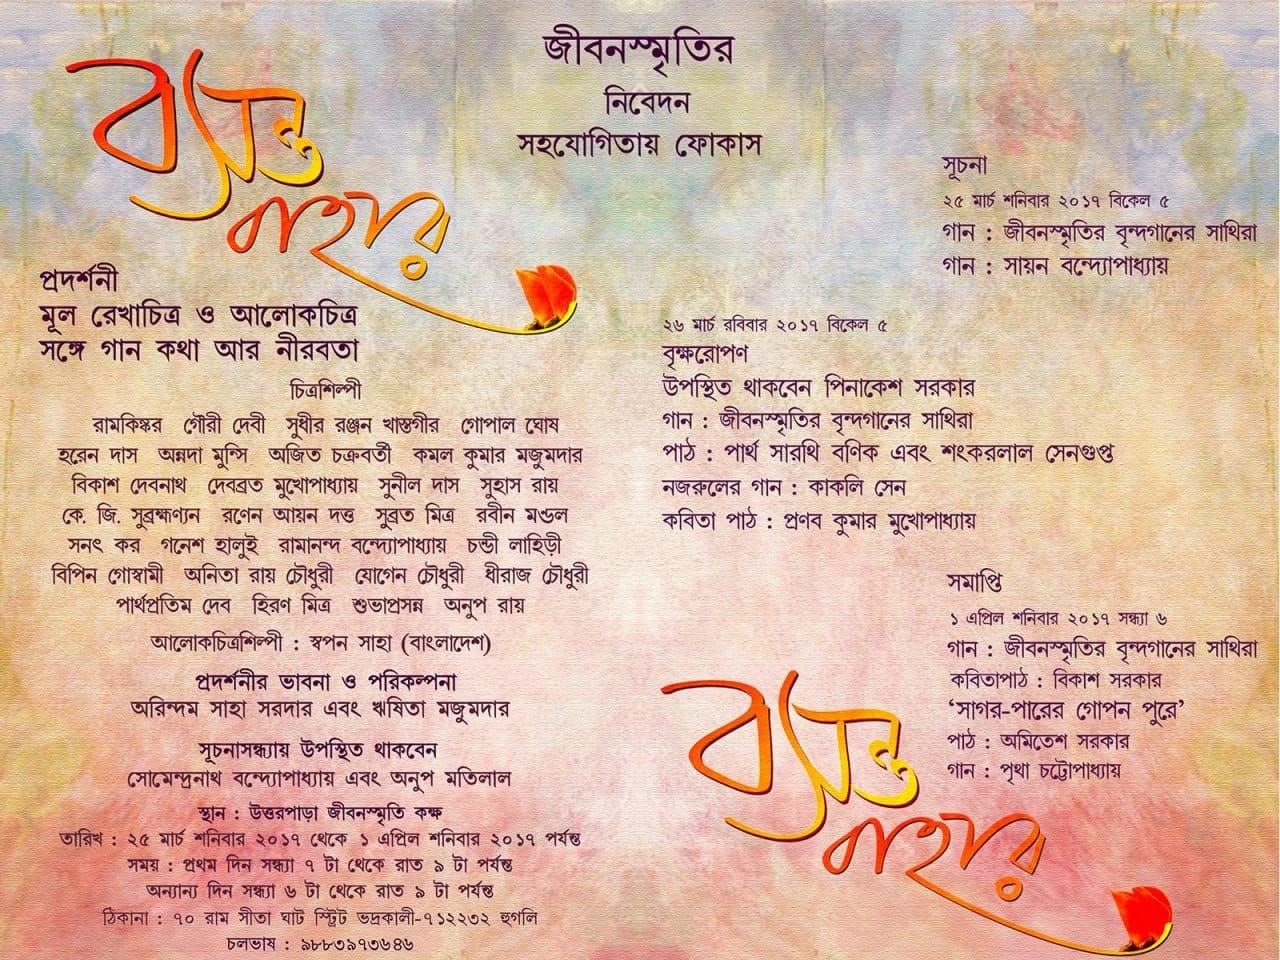 বসন্ত
বাহার
জীবনস্মৃতির
নিবেদন
সহযোগিতায় ফোকাস
প্রদর্শনী
মূল রেখাচিত্র ও আলোকচিত্র
সঙ্গে গান কথা আর নীরবতা
চিত্রশিল্পী
রামকিঙ্কর গৌরী দেবী সুধীর রঞ্জন খাস্তগীর গোপাল ঘোষ
হরেন দাস অন্নদা মুন্সি অজিত চক্রবর্তী কমল কুমার মজুমদার
বিকাশ দেবনাথ দেবব্রত মুখোপাধ্যায় সুনীল দাস সুহাস রায়
কে. জি. সুব্রহ্মণ্যন রণেন আয়ন দত্ত সুব্রত মিত্র রবীন মণ্ডল
সনৎ কর গনেশ হালুই রামানন্দ বন্দ্যোপাধ্যায় চন্ডী লাহিড়ী
বিপিন গোস্বামী অনিতা রায় চৌধুরী যোগেন চৌধুরী ধীরাজ চৌধুরী
পার্থপ্রতিম দেব হিরণ মিত্র শুভাপ্রসন্ন অনুপ রায়
আলোকচিত্রশিল্পী : স্বপন সাহা (বাংলাদেশ)
প্রদর্শনীর ভাবনা ও পরিকল্পনা
অরিন্দম সাহা সরদার এবং ঋষিতা মজুমদার
সূচনাসন্ধ্যায় উপস্থিত থাকবেন
সোমেন্দ্রনাথ বন্দ্যোপাধ্যায় এবং অনুপ মতিলাল
স্থান : উত্তরপাড়া জীবনস্মৃতি কক্ষ
তারিখ : ২৫ মার্চ শনিবার ২০১৭ থেকে ১ এপ্রিল শনিবার ২০১৭ পর্যন্ত
সময় : প্রথম দিন সন্ধ্যা ৭ টা থেকে রাত ৯ টা পর্যন্ত
অন্যান্য দিন সন্ধ্যা ৬ টা থেকে রাত ৯ টা পর্যন্ত
ঠিকানা : ৭০ রাম সীতা ঘাট স্ট্রিট ভদ্রকালী-৭১২২৩২ হুগলি
চলভাষ : ৯৮৮৩৯৭৩৬৪৬
সূচনা
২৫ মার্চ শনিবার ২০১৭ বিকেল ৫
গান : জীবনস্মৃতির বৃন্দগানের সাথিরা
গান : সায়ন বন্দ্যোপাধ্যায়
২৬ মার্চ রবিবার ২০১৭ বিকেল ৫
বৃক্ষরোপণ
উপস্থিত থাকবেন পিনাকেশ সরকার
গান : জীবনস্মৃতির বৃন্দগানের সাথিরা
পাঠ : পার্থ সারথি বণিক এবং শংকরলাল সেনগুপ্ত
নজরুলের গান : কাকলি সেন
কবিতা পাঠ : প্রণব কুমার মুখোপাধ্যায়
সমাপ্তি
১ এপ্রিল শনিবার ২০১৭ সন্ধ্যা ৬
গান : জীবনস্মৃতির বৃন্দগানের সাথিরা
কবিতাপাঠ : বিকাশ সরকার
‘সাগর-পারের গোপন পুরে’
পাঠ : অমিতেশ সরকার
গান : পৃথা চট্টোপাধ্যায়
বসন্ত
বাহার